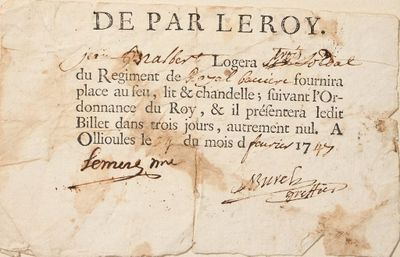 DE PAR LE ROY.
Logera un Soldat
du Regiment de Royal Baviere fournira
place au feu, lit & chandelle; suivant l'Or-
donnance du Roy, & il présentera ledit
Billet dans trois jours, autrement nul. A
Ollioules le du mois d fevrier 1747
Lemere mre
Burel
greffier